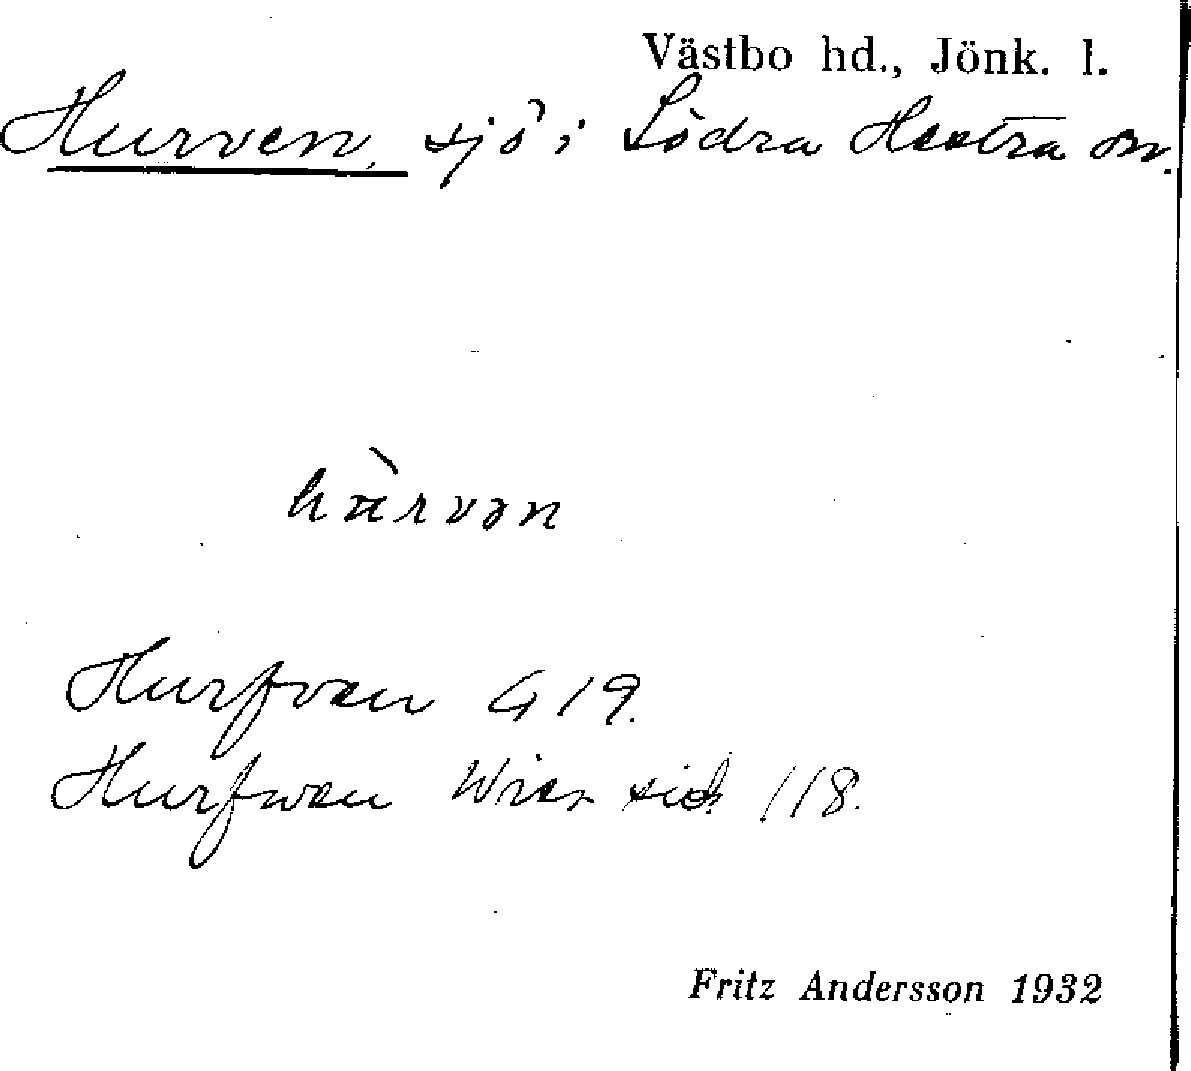 Västbo hd., Jönk. l.
Hurven, sjö i Södra Hestra sn.
hùrvən
Hurfven G 19.
Hurfwen Wier sid. 118.
Fritz Andersson 1932